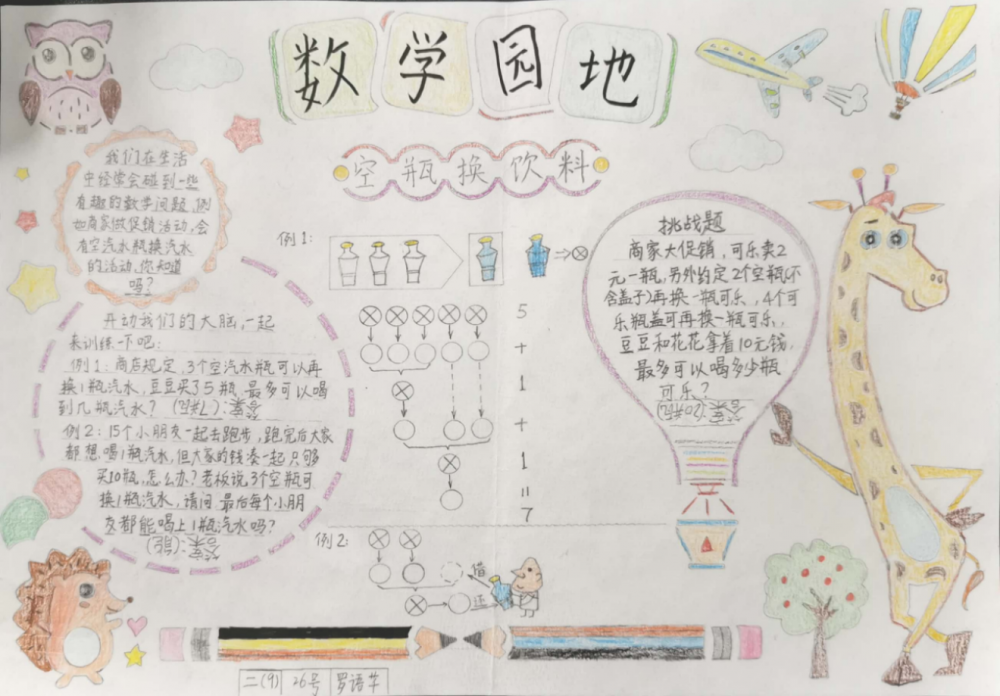 数学园地
空瓶换饮料
我们在生活
中经常会碰到一些
有趣的数学问题,例
如商家做促销活动,会
有空汽水瓶换汽水
的活动,你知道
吗?
开动我们的大脑,一起
来训练一下吧:
例1:商店规定,3个空汽水瓶可以再
换1瓶汽水,豆豆买了5瓶,最多可以喝
到几瓶汽水?答案:(7瓶)
例2:15个小朋友一起去跑步,跑完后大家
都想喝1瓶汽水,但大家的钱凑一起只够
买10瓶,怎么办?老板说,3个空瓶可
换1瓶汽水,请问,最后每个小朋
友都能喝上1瓶汽水吗?
答案:(能)
例1:
5
+
1
+
1
=
7
例2:
借
还
挑战题
商家大促销,可乐卖2
元一瓶,另外约定2个空瓶(不
含盖子)再换一瓶可乐,4个可
乐瓶盖可再换一瓶可乐,
豆豆和花花拿着10元钱,
最多可以喝多少瓶
可乐?
答案:(20瓶)
二(9) 26号 罗语芊